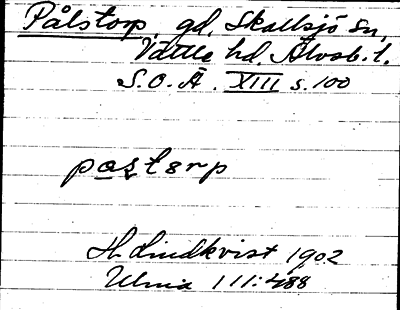 Pålstorp, gd, Skallsjö sn,
Vättle hd. Älvsb. l.
S.O.Ä. XIII s. 100
pastorp
H. Lindkvist 1902
Ulma 111:488